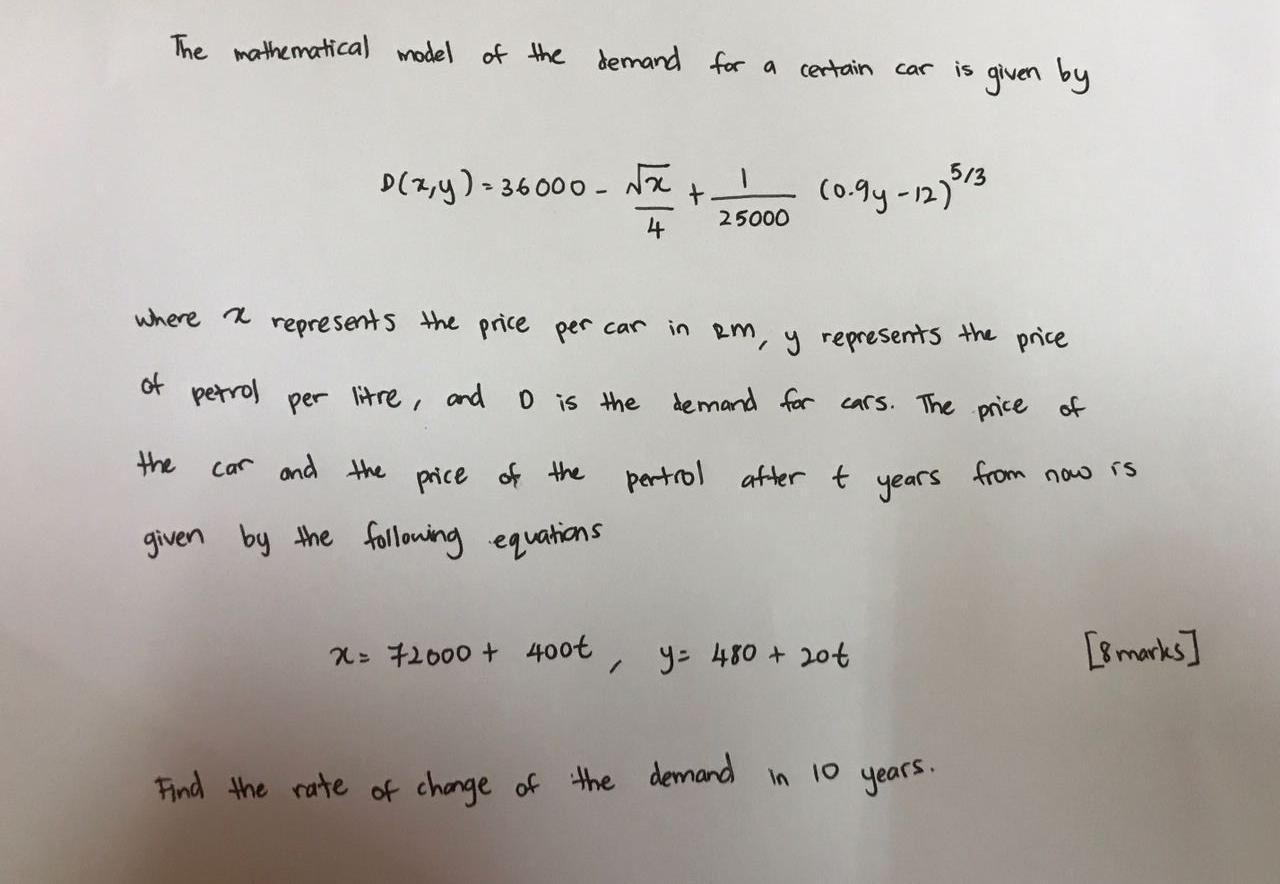 The mathematical model of the demand for a certain car is given by
D(x,y) = 36000 - √x/4 + 1/25000 (0.9y - 12)^5/3
where x represents the price per car in RM, y represents the price
of petrol per litre, and D is the demand for cars. The price of
the car and the price of the pertrol after t years from now is
given by the following equations
x = 72000 + 400t, y = 480 + 20t [8 marks]
Find the rate of change of the demand in 10 years.